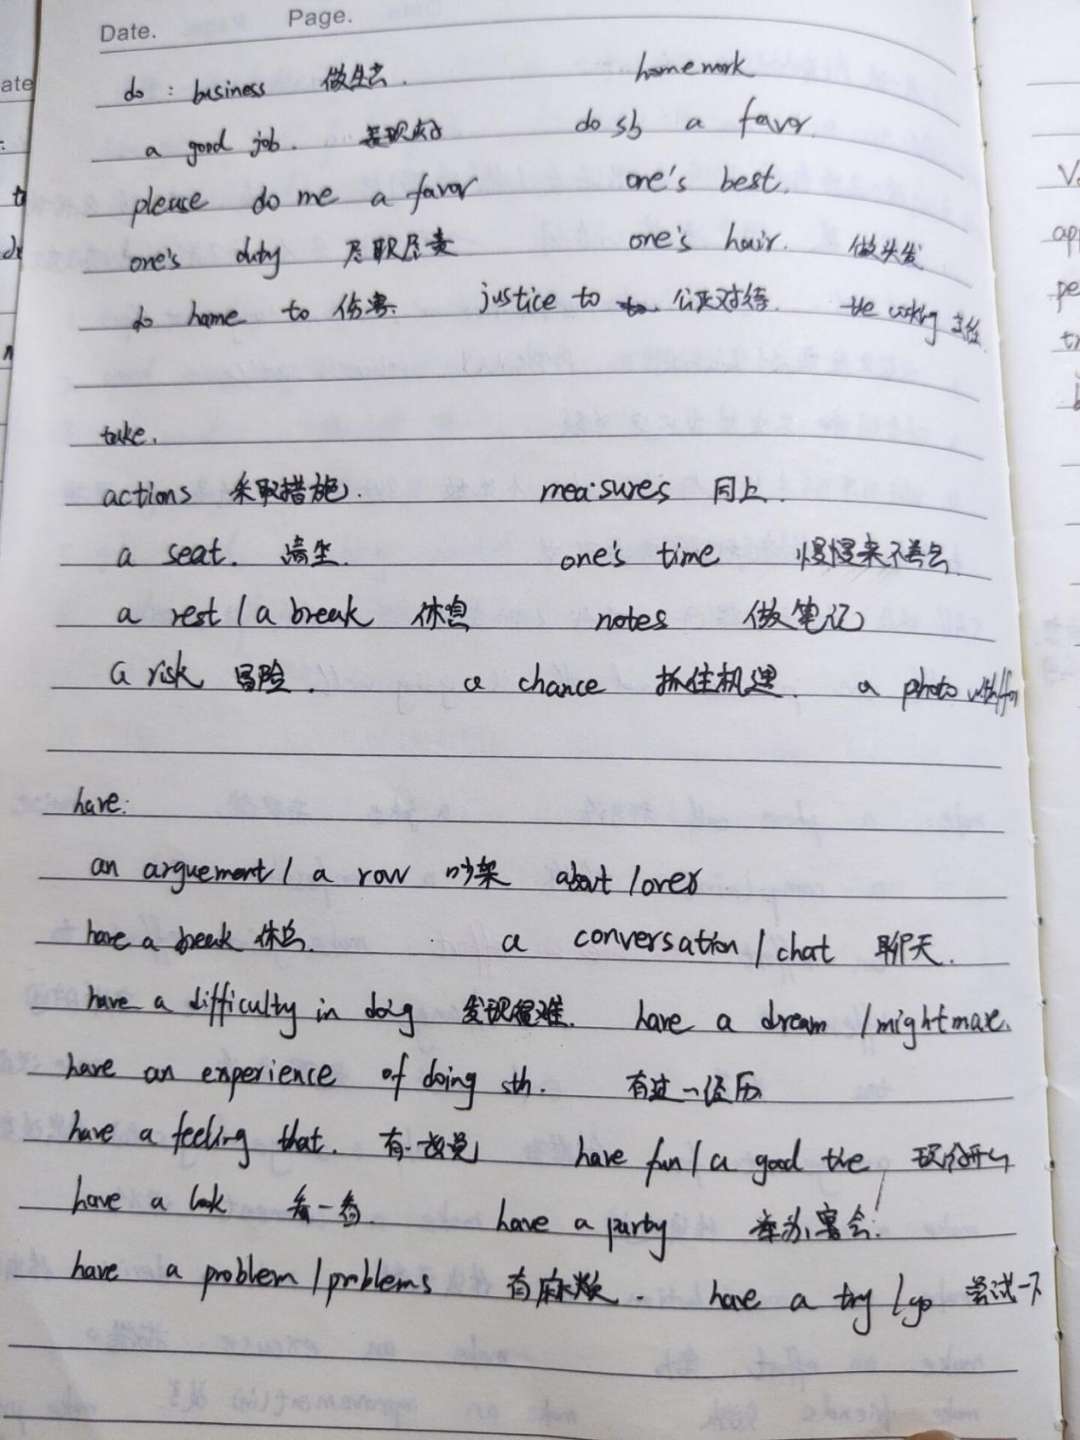 Date. Page.
do : business 做生意. homework
a good job. 表现好 do sb a favor.
please do me a favor one's best.
one's duty 尽职尽责 one's hair. 做头发
do hame to 伤害. justice to 公正对待. the
take.
actions 采取措施. measures 同上.
a seat. 请坐. one's time 慢慢来不着急
a rest / a break 休息 notes 做笔记
a risk 冒险. a chance 抓住机遇. a photo with/for
have:
an arguement / a row 吵架 about / over
have a break 休息. a conversation / chat 聊天.
have a difficulty in doing 发现很难. have a dream / mightmare.
have an experience of doing sth. 有过一经历
have a feeling that. 有一感觉 have fun / a good time 玩得开心
have a look 看一看. have a party 举办宴会!
have a problem / problems 有麻烦. have a try / go 尝试一下
ate
app
pe